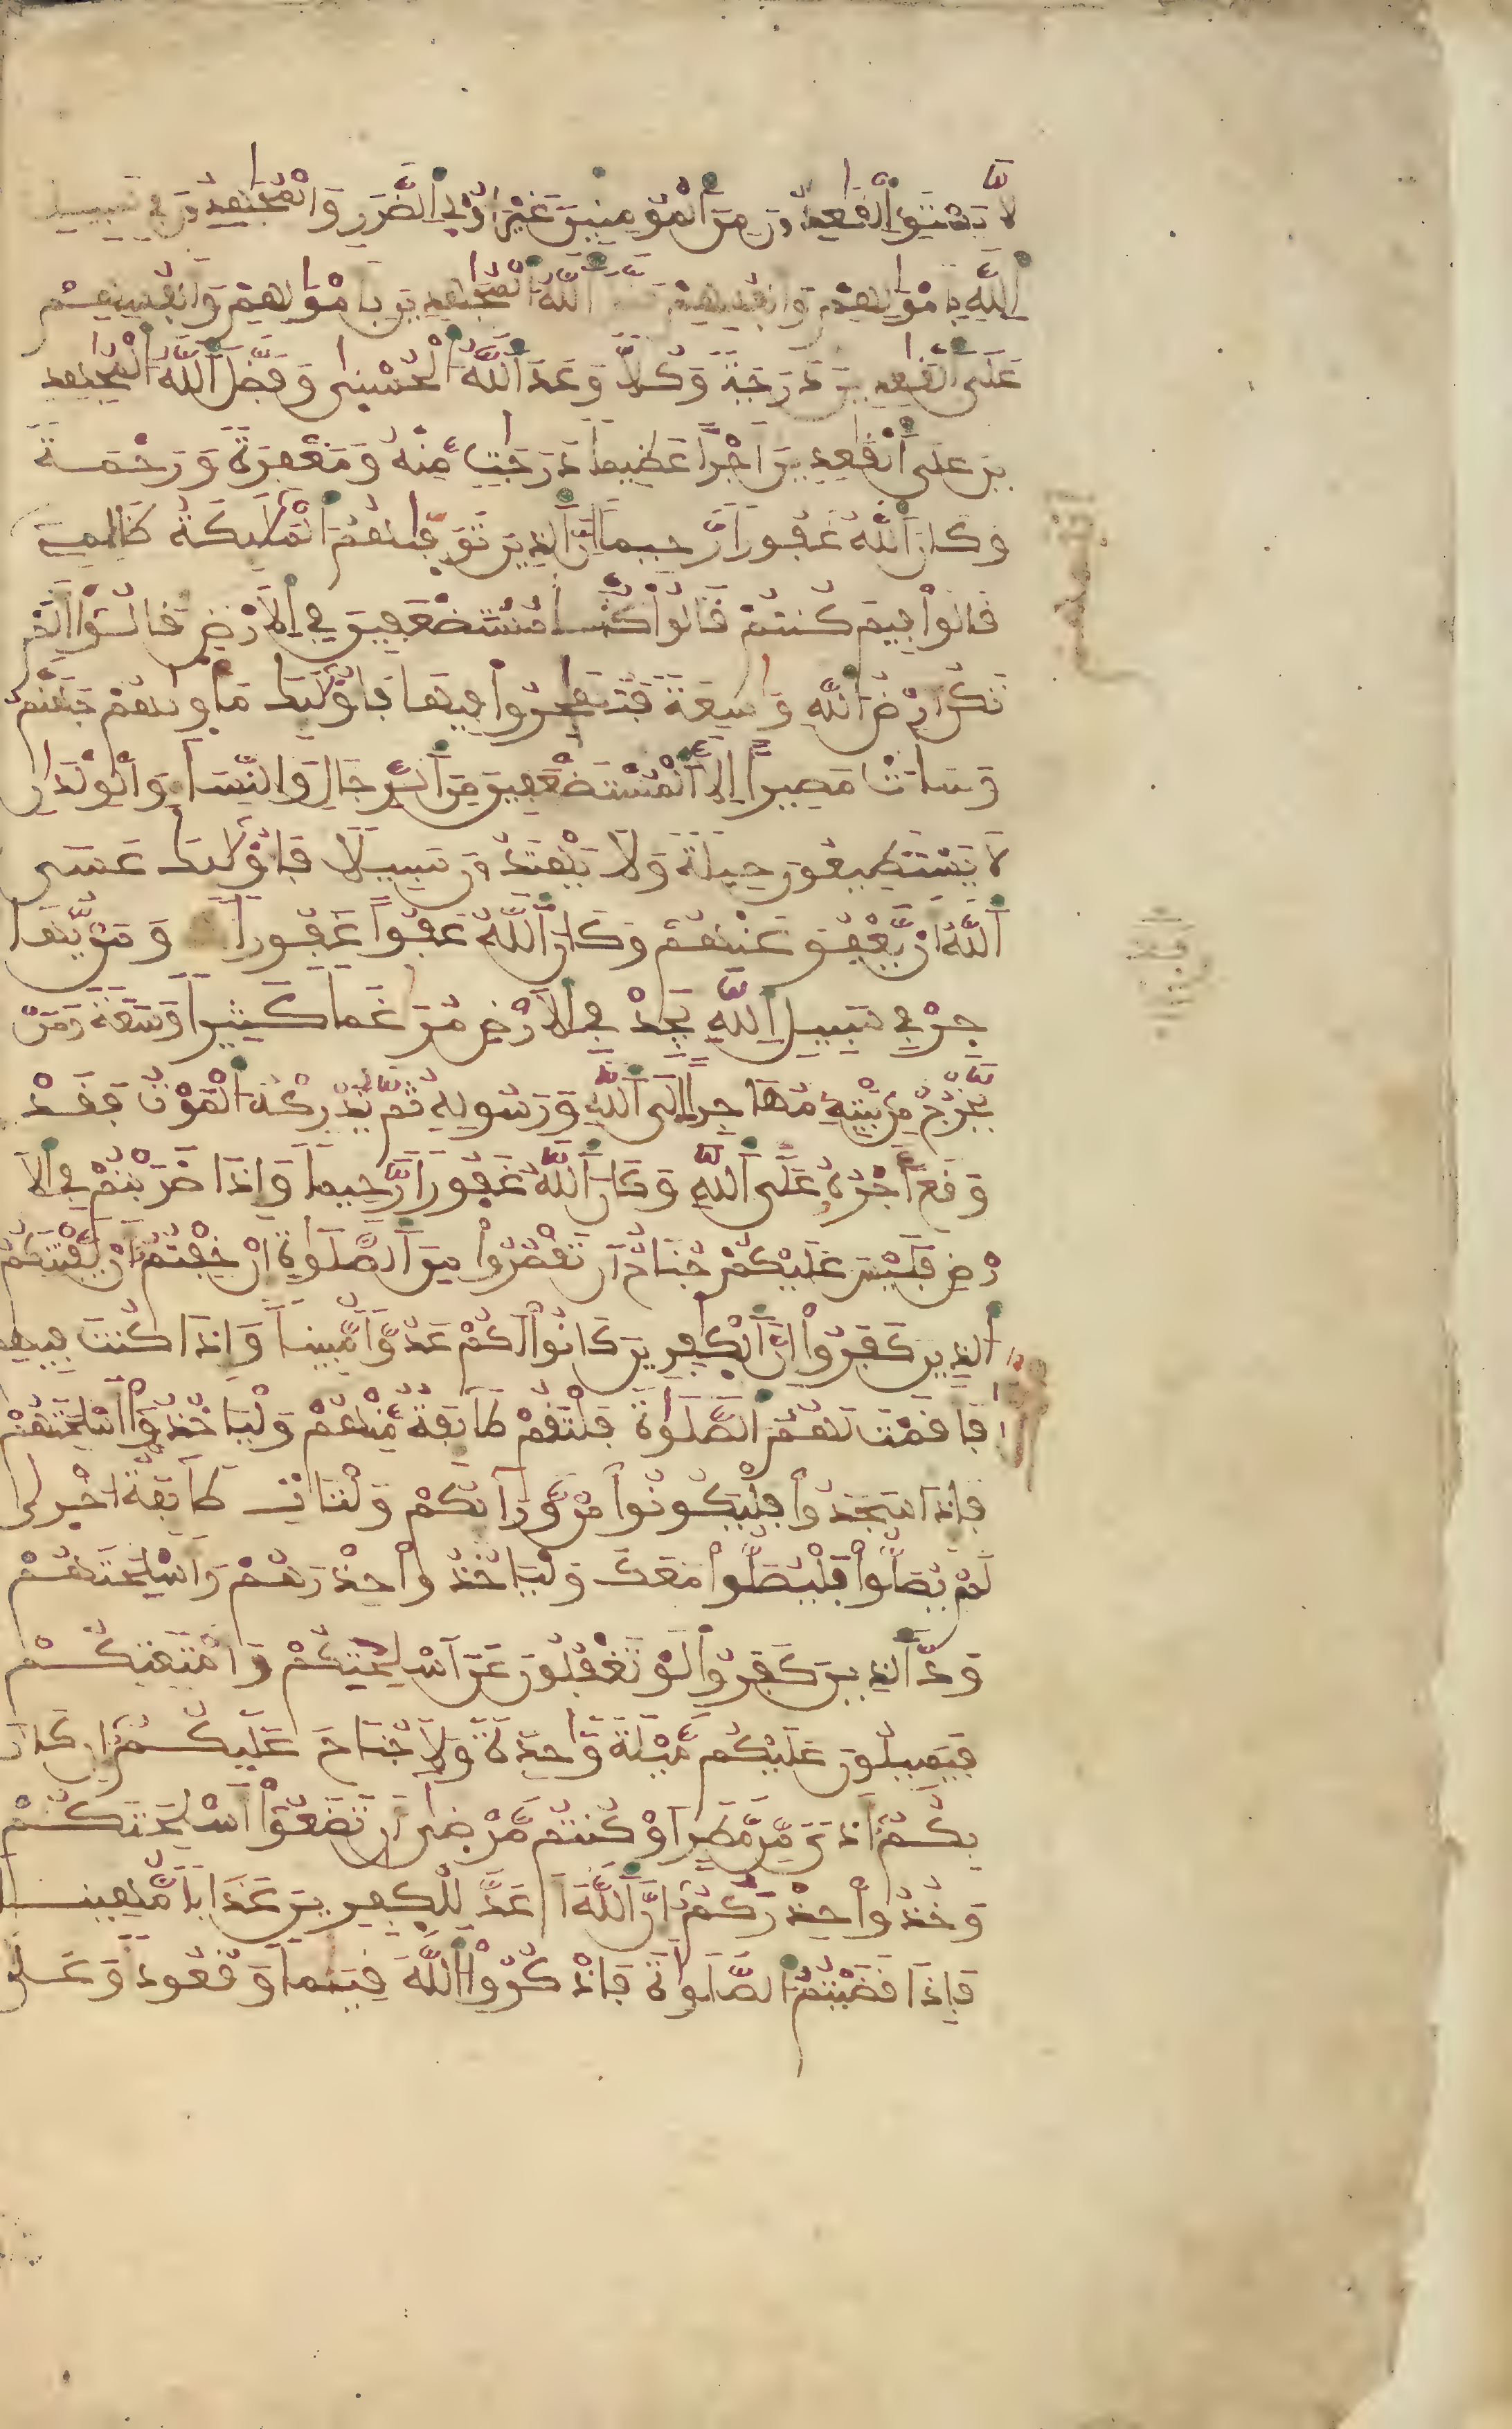 لَّا يَسْتَوِى اْلْقَٰعِدُونَ مِنَ اَلْمُومِنِينَ غَيْرَ أُوْلِى اِلضَّرَرِ وَالْمُجَٰهِدُونَ فِى سَبِيلِ
اِللَّهِ بِأَمْوَٰلِهِمْ وَأَنفُسِهِمْ فَضَّلَ اَللَّهُ اُلْمُجَٰهِدِينَ بِأَمْوَٰلِهِمْ وَأَنفُسِهِمْ
عَلَى اَلْقَٰعِدِينَ دَرَجَةً وَكُلّاً وَعَدَ اَللَّهُ اُلْحُسْنِىٰ وَفَضَّلَ اَللَّهُ اُلْمُجَٰهِدِ
ينَ عَلَى اَلْقَٰعِدِينَ أَجْراً عَظِيماً دَرَجَٰتٍ مِّنْهُ وَمَغْفِرَةً وَرَحْمَةً
وَكَانَ اَللَّهُ غَفُوراً رَّحِيماً إِنَّ اَلذِينَ تَوَفّٰىٰهُمُ اُلْمَلَٰٓئِكَةُ ظَالِمِىٓ
قَالُواْ فِيمَ كُنتُمْ قَالُواْ كُنَّا مُسْتَضْعَفِينَ فِى اِلَارْضِ قَالُوٓاْ أَلَمْ
تَكُنَ اَرْضُ اُللَّهِ وَٰسِعَةً فَتُهَاجِرُواْ فِيهَا فَأُوْلَٰٓئِكَ مَأْوِيٰهُمْ جَهَنَّمُ
وَسَآءَتْ مَصِيراً اِلَّا اَلْمُسْتَضْعَفِينَ مِنَ اَلرِّجَالِ وَالنِّسَآءِ وَالْوِلْدَٰنِ
لَا يَسْتَطِيعُونَ حِيلَةً وَلَا يَهْتَدُونَ سَبِيلًا فَأُوْلَٰٓئِكَ عَسَى
اَللَّهُ أَنْ يَّعْفُوَ عَنْهُمْ وَكَانَ اَللَّهُ عَفُوّاً غَفُوراً وَمَنْ يُّهَا
جِرْ فِى سَبِيلِ اِللَّهِ يَجِدْ فِى اِلَارْضِ مُرَٰغَماً كَثِيراً وَسَعَةً وَمَنْ
يَّخْرُجْ مِنۢ بَيْتِهِۦ مُهَاجِراً اِلَى اَللَّهِ وَرَسُولِهِۦ ثُمَّ يُدْرِكْهُ اُلْمَوْتُ فَقَدْ
وَقَعَ أَجْرُهُۥ عَلَى اَللَّهِ وَكَانَ اَللَّهُ غَفُوراً رَّحِيماً وَإِذَا ضَرَبْتُمْ فِى اِلَا
رْضِ فَلَيْسَ عَلَيْكُمْ جُنَاحٌ اَن تَقْصُرُواْ مِنَ اَلصَّلَوٰةِ إِنْ خِفْتُمُ أَنْ يَّفْتِنَكُمُ
اُلذِينَ كَفَرُواْ إِنَّ اَلْكٰفِرِينَ كَانُواْ لَكُمْ عَدُوّاً مُّبِيناً وَإِذَا كُنتَ فِيهِمْ
فَأَقَمْتَ لَهُمُ اُلصَّلَوٰةَ فَلْتَقُمْ طَآئِفَةٌ مِّنْهُمْ وَلْيَأْخُذُوٓاْ أَسْلِحَتَهُمْ
فَإِذَا سَجَدُواْ فَلْيَكُونُواْ مِنْ وَّرَآئِكُمْ وَلْتَاتِ طَآئِفَةٌ اُخْر۪ىٰ
لَمْ يُصَلُّواْ فَلْيُصَلُّواْ مَعَكَ وَلْيَأْخُذُواْ حِذْرَهُمْ وَأَسْلِحَتَهُمْ
وَدَّ اَلذِينَ كَفَرُواْ لَوْ تَغْفُلُونَ عَنَ اَسْلِحَتِكُمْ وَأَمْتِعَتِكُمْ
فَيَمِيلُونَ عَلَيْكُم مَّيْلَةً وَٰحِدَةً وَلَا جُنَاحَ عَلَيْكُمُ إِن كَانَ
بِكُمُ أَذىً مِّن مَّطَرٍ اَوْ كُنتُم مَّرْضىٰٓ أَن تَضَعُوٓاْ أَسْلِحَتَكُمْ
وَخُذُواْ حِذْرَكُمُ إِنَّ اَللَّهَ أَعَدَّ لِلْكٰفِرِينَ عَذَاباً مُّهِيناً
فَإِذَا قَضَيْتُمُ اُلصَّلَوٰةَ فَاذْكُرُواْ اُللَّهَ قِيَٰماً وَقُعُوداً وَعَلَىٰ